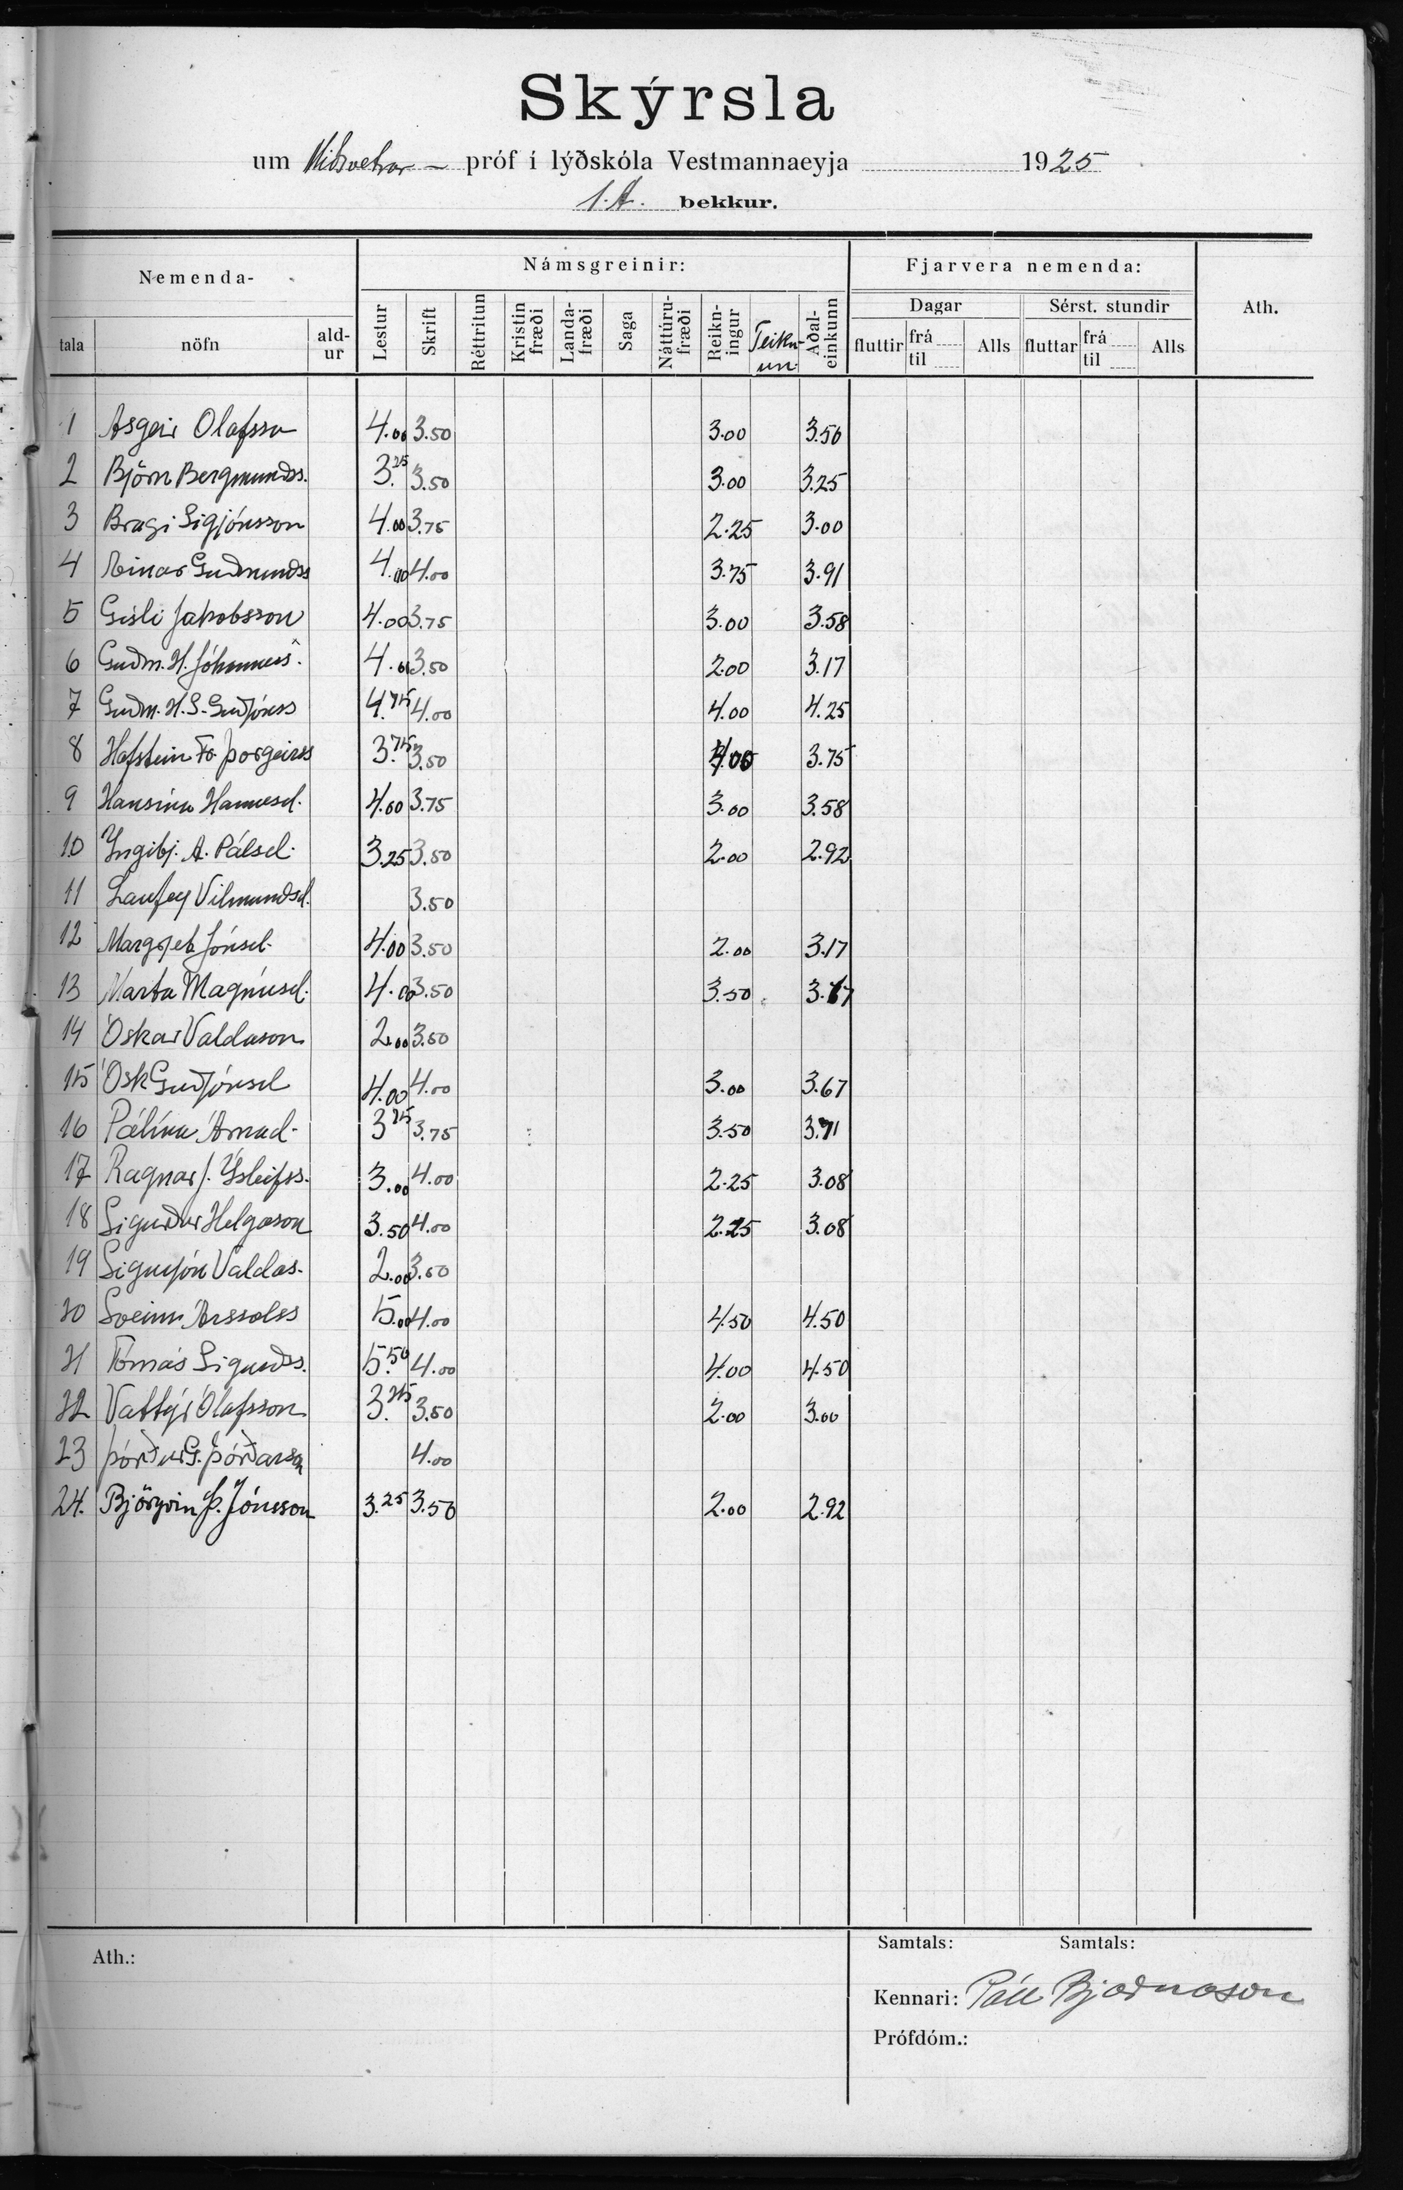 Skýrsla
um Miðsvetrar- próf í lýðskóla Vestmannaeyja 1925
1. A. bekkur.
Nemenda- Námsgreinir: Fjarvera nemenda: Ath.
Dagar Sérst. stundir
tala nöfn ald-ur Lestur Skrift Réttritun Kristin fræði Landa-fræði Saga Náttúru-fræði Reikn-ingur Teikn-un Aðal-einkunn fluttir frá til Alls fluttar frá til Alls
1 Asgeir Olafsson 4.00 3.50 3.00 3.50
2 Björn Bergmundss. 3.25 3.50 3.00 3.25
3 Bragi Sigjónsson 4.00 3.75 2.25 3.00
4 Einar Guðmundss 4.00 4.00 3.75 3.91
5 Gísli Jakobsson 4.00 3.75 3.00 3.58
6 Guðm. H. Jóhanness. 4.00 3.50 2.00 3.17
7 Guðm. H. S. Guðjónss 4.75 4.00 4.00 4.25
8 Hafstein Fr. Þorgeirss 3.75 3.50 4.00 3.75
9 Hansína Hannesd. 4.00 3.75 3.00 3.58
10 Yngibj. A. Pálsd. 3.25 3.50 2.00 2.92
11 Laufey Vilmundsd. 3.50
12 Margrjet Jónsd. 4.00 3.50 2.00 3.17
13 Marta Magnúsd. 4.00 3.50 3.50 3.67
14 Óskar Valdason 2.00 3.50
15 Ósk Guðjónsd 4.00 4.00 3.00 3.67
16 Pálína Árnad. 3.75 3.50 3.71
17 Ragnar J. Ýsleifss. 3.00 4.00 2.25 3.08
18 Sigurður Helgason 3.50 4.00 2.25 3.08
19 Sigurjón Valdas. 2.00 3.50
20 Sveinn Ársælss 5.00 4.00 4.50 4.50
21 Tómás Sigurðss. 5.50 4.00 4.00 4.50
22 Valtýr Ólafsson 3.50 2.00 3.00
23 Þórður G. Þórðarson 4.00
24. Björgvin Þ. Jónsson 3.25 3.50 2.00 2.92
Ath.:
Samtals: Samtals:
Kennari: Páll Bjarnason
Prófdóm.: